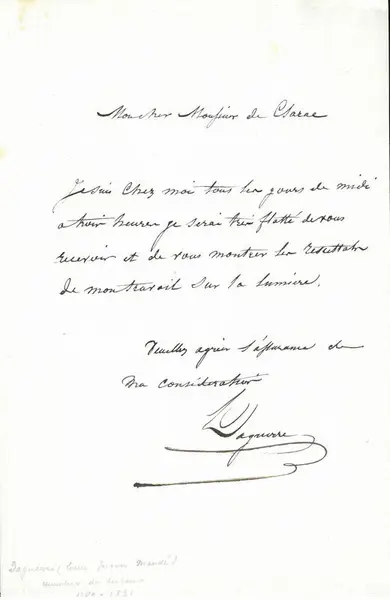 Moncher Monsieur de Clarac
Jesuis Chez moi tous les jours de midi
atrois heures je serai très flatté devous
recevoir et de vous montrer les resultats
de montravail sur la lumière.
Veuillez agréer l'assurance de
Ma considération
Daguerre
Daguerre (Louis Jacques Mandé)